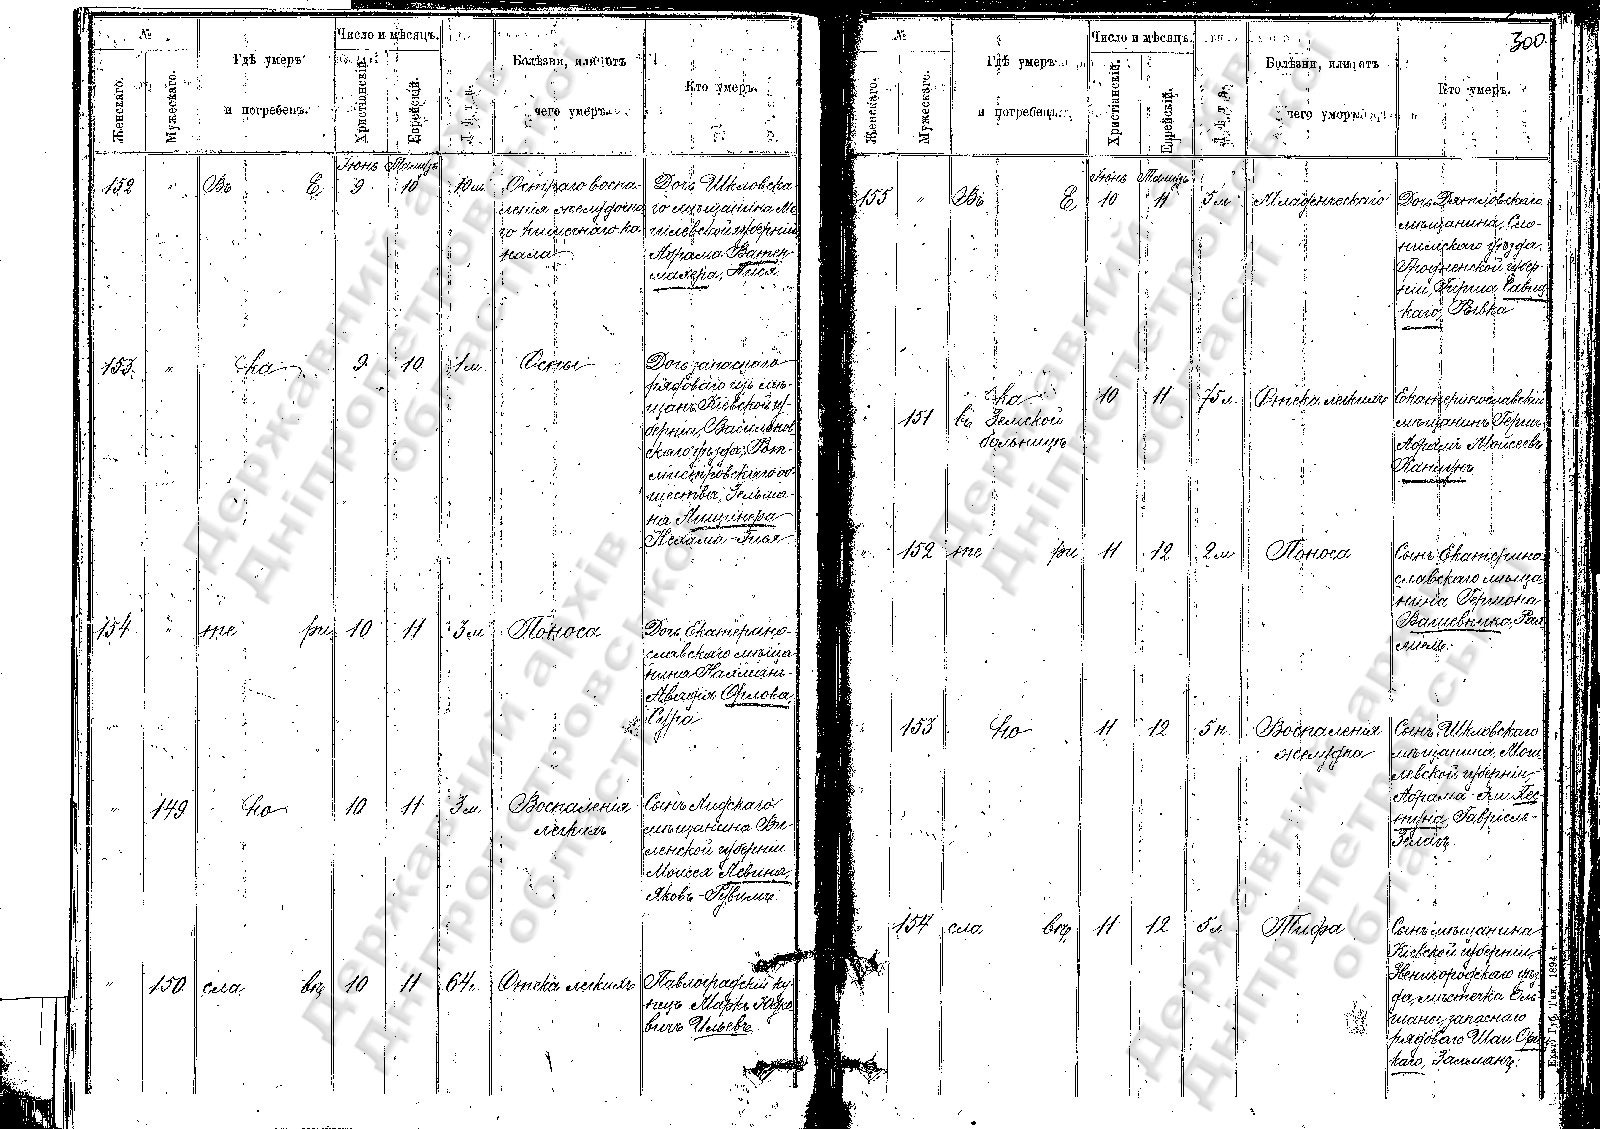 №
Женскаго.
Мужескаго.
Гдѣ умеръ
и погребенъ.
Число и мѣсяцъ.
Христіонскій.
Еврейскій.
Лѣта.
Болѣзни, или отъ
чего умеръ.
Кто умеръ.
Іюнь Тамузъ
152 " Въ Е 9 10 10 м.
Остраго воспа-
ленія желудочна
го кишечнаго ка
нала
Дочь Шкловска
го мѣщанина Мо
гилевской губерніи
Абрама Ватер-
махера, Лися
153. " ка 9 10 1 м. Оспы
Дочь запаснаго
рядоваго изъ мѣ-
щанъ Кіевской гу-
берніи, Васильков
скаго уѣзда, Рот-
мистровскаго об
щества, Зельма-
на Лищинера
Нехама-Гитя
154 " те ри 10 11 3 м. Поноса
Дочь Екатерино-
славскаго мѣща
нина
Орлова,
Сура
" 149 но 10 11 3 м.
Воспаленія
легкихъ
Сынъ Лидскаго
мѣщанина Ви-
ленской губерніи
Моисея Левина,
Яковъ-Рувимъ
" 150. сла вѣ 10 11 64 г. Отека легкихъ
Павлоградскій ку-
пецъ Маркъ
вичъ Ильевъ
300
№
Женскаго.
Мужескаго.
Гдѣ умеръ
и погребенъ.
Число и мѣсяцъ.
Христіанскій.
Еврейскій.
Лѣта.
Болѣзни, или отъ
чего умеръ.
Кто умеръ.
Іюнь Тамузъ
155 " Въ Е 10 11 5 м. Младенческаго
Дочь
мѣщанина, Сло-
нимскаго уѣзда,
Гродненской губер-
ніи, Гирша Савиц
каго, Ривка
" 151
ка
въ Земской
больницѣ
10 11 75 л. Отека легкихъ
Екатеринославскій
мѣщанинъ Гершъ
Абрамъ Моисеевъ
" 152 те ри 11 12 2 м Поноса
Сынъ Екатерино
славскаго мѣща
нина
" 153 но 11 12 5 н.
Воспаленія
желудка
Сынъ Шкловскаго
мѣщанина Моги
левской губерніи
Абрама
Гавріель-
154 сла вѣ 11 12 5 л Тифа
Сынъ мѣщанина
Кіевской губерніи
Звенигородскаго уѣз
да, мѣстечка Оль
шаны, запаснаго
рядоваго Шаи
каго, Зальманъ.
Екат. Губ. Тип. 1894 г.
Державний архів
Дніпропетровської
області